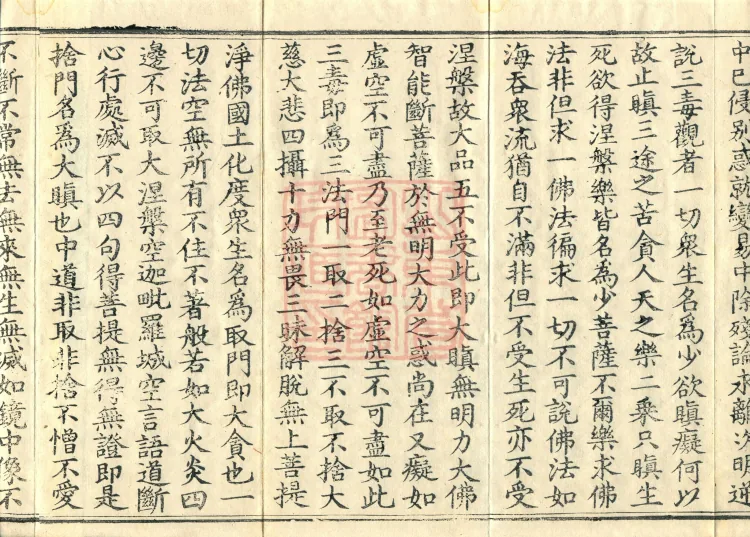 中已侵別惑就變易中除殘論永離次明逆
說三毒觀者一切衆生名爲少欲瞋癡何以
故止瞋三途之苦貪人天之樂二乘只瞋生
死欲得涅槃樂皆名爲少菩薩不爾樂求佛
法非但求一佛法徧求一切不可說佛法如
海吞衆流猶自不滿非但不受生死亦不受
涅槃故大品五不受此即大瞋無明力大佛
智能斷菩薩於無明大力之惑尚在又癡如
虛空不可盡乃至老死如虛空不可盡如此
三毒即爲三法門一取二捨三不取不捨大
慈大悲四攝十力無畏三昧解脫無上菩提
淨佛國土化度衆生名爲取門即大貪也一
切法空無所有不住不著般若如大火炎四
邊不可取大涅槃空迦毗羅城空言語道斷
心行處滅不以四句得菩提無得無證即是
捨門名爲大瞋也中道非取非捨不憎不愛
不斷不常無去無來無生無滅如鏡中像不